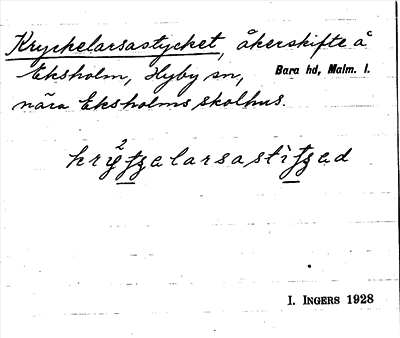 Kryckelarsastycket, åkerskifte å
Eksholm, Hyby sn, Bara hd, Malm. l.
nära Eksholms skolhus.
I. INGERS 1928